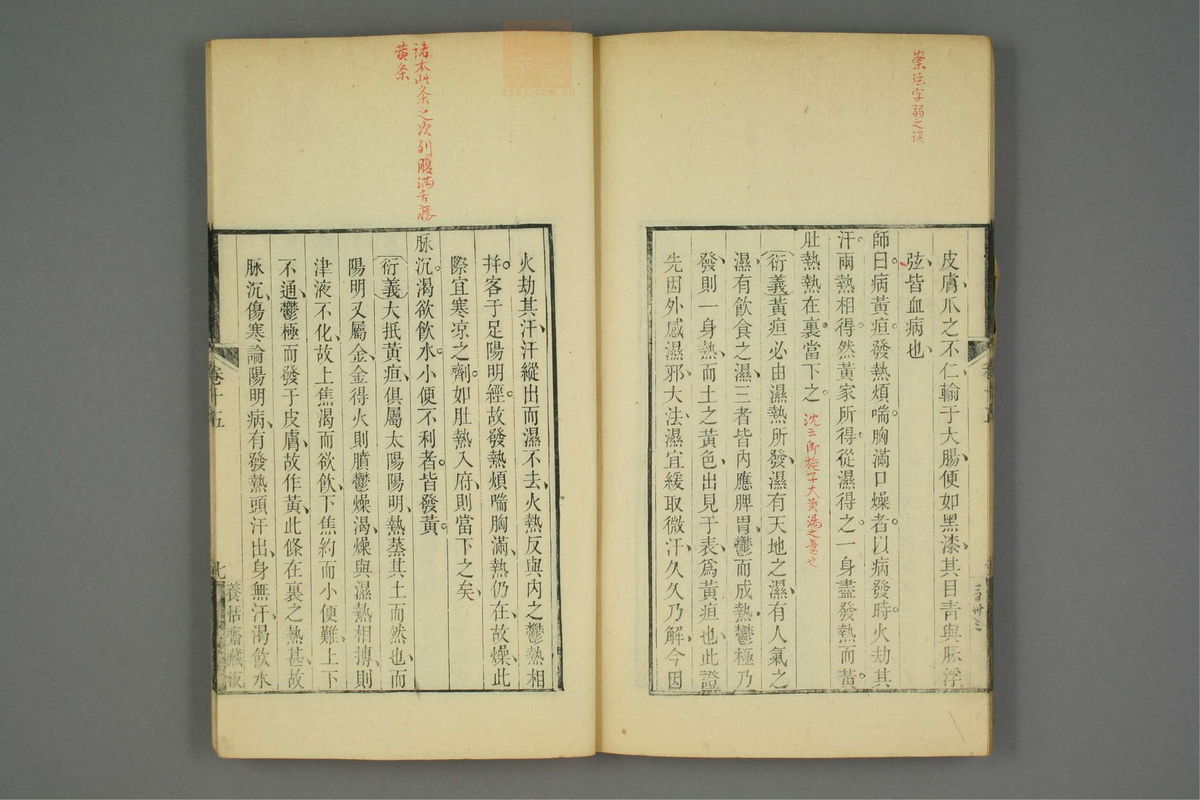 案弦字弱之誤
皮膚爪之不仁輸于大腸便如黑漆其目青與脉浮
弦皆血病也
師曰病黃疸發熱煩喘胸滿口燥者以病發時火劫其
汗兩熱相得然黃家所得從濕得之一身盡發熱而黃
肚熱熱在裏當下之
沈云即梔子大黃湯之意也
衍義黃疸必由濕熱所發濕有天地之濕有人氣之
濕有飲食之濕三者皆內應脾胃鬱而成熱鬱極乃
發則一身熱而土之黃色出見于表為黃疸也此證
先因外感濕邪大法濕宜緩取微汗久久乃解今因
卷十五
諸本此条之次列腹滿舌痿
黄条
火劫其汗汗縱出而濕不去火熱反與內之鬱熱相
幷客于足陽明經故發熱煩喘胸滿熱仍在故燥此
際宜寒凉之劑如肚熱入府則當下之矣
脉沉渴欲飲水小便不利者皆發黃
衍義大抵黃疸俱屬太陽陽明熱蒸其土而然也而
陽明又屬金金得火則膹鬱燥渴燥與濕熱相摶則
津液不化故上焦渴而欲飲下焦約而小便難上下
不通鬱極而發于皮膚故作黃此條在裏之熱甚故
脉沉傷寒論陽明病有發熱頭汗出身無汗渴飲水
卷十五
七
養恬齋藏板